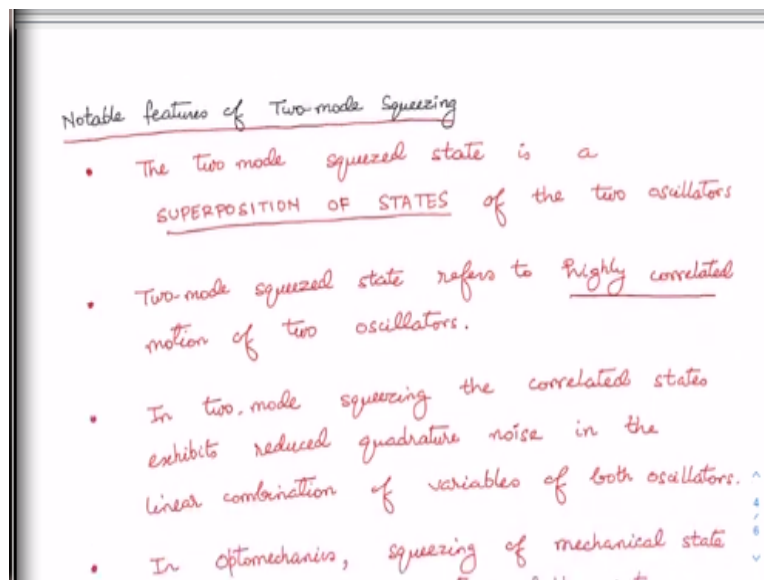 Notable features of Two-mode Squeezing
• The two mode squeezed state is a
SUPERPOSITION OF STATES of the two oscillators
• Two-mode squeezed state refers to highly correlated
motion of two oscillators.
• In two-mode squeezing the correlated states
exhibits reduced quadrature noise in the
linear combination of variables of both oscillators.
• In optomechanics, squeezing of mechanical state
4
/
6